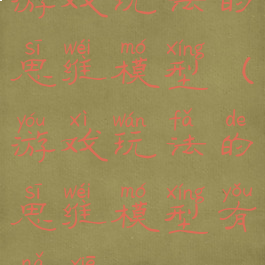 游戏玩法的
sī wéi mó xíng
思维模型（
yóu xì wán fǎ de
游戏玩法的
sī wéi mó xíng
思维模型